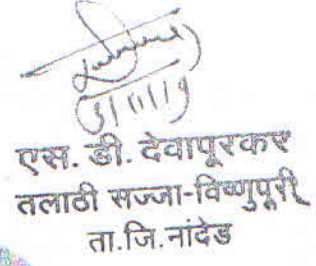 एस. डी. देवापूरकर
तलाठी सज्जा-विष्णुपूरी
ता.जि.नांदेड